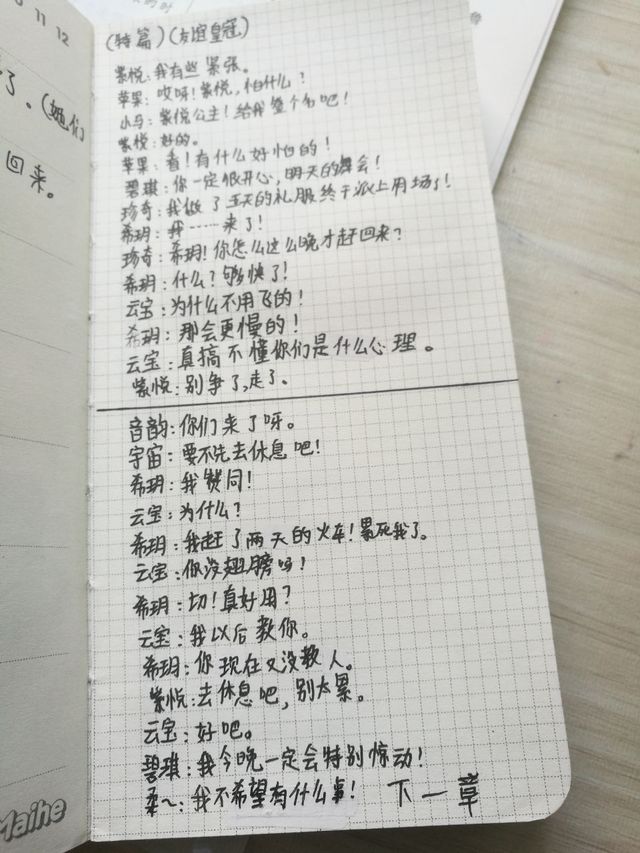 11 12
了。(她们
回来。
(特篇)(友谊皇冠)
紫悦:我有些紧张。
苹果:哎呀!紫悦,怕什么?
小马:紫悦公主!给我签个名吧!
紫悦:好的。
苹果:看!有什么好怕的!
碧琪:你一定很开心,明天的舞会!
珍奇:我做了五天的礼服终于派上用场了!
希玥:我……来了!
珍奇:希玥!你怎么这么晚才赶回来?
希玥:什么?够快了!
云宝:为什么不用飞的!
希玥:那会更慢的!
云宝:真搞不懂你们是什么心理。
紫悦:别争了,走了。
音韵:你们来了呀。
宇宙:要不先去休息吧!
希玥:我赞同!
云宝:为什么?
希玥:我赶了两天的火车!累死我了。
云宝:你没翅膀吗!
希玥:切!真好用?
云宝:我以后教你。
希玥:你现在又没教人。
紫悦:去休息吧,别太累。
云宝:好吧。
碧琪:我今晚一定会特别惊动!
柔~:我不希望有什么事! 下一章
Maihe